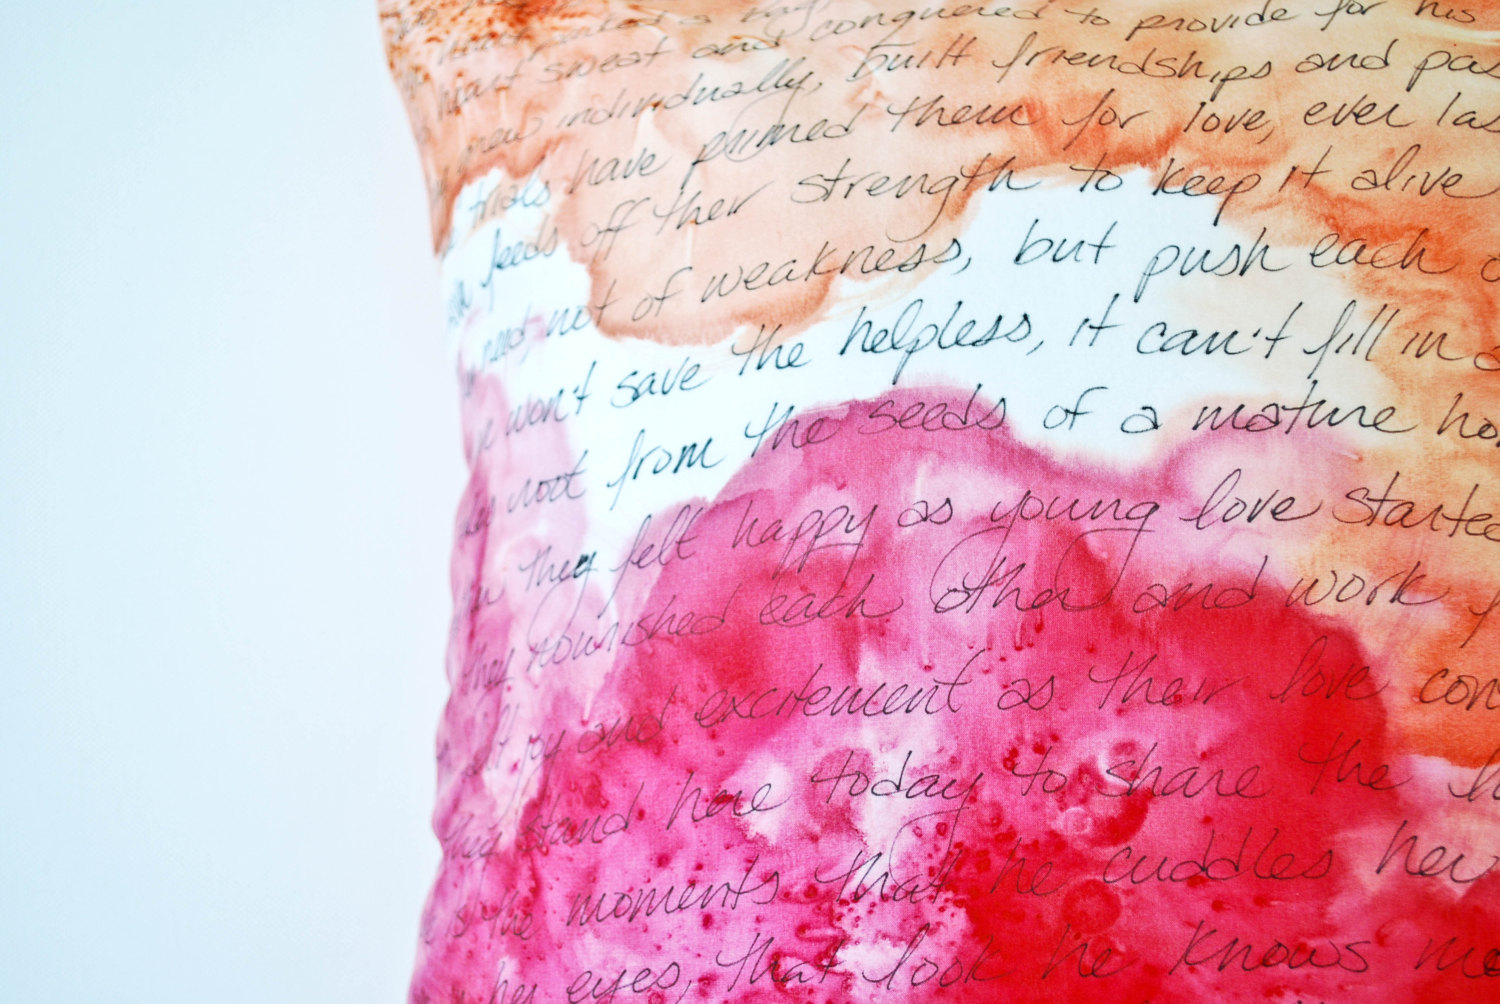 and conquered to provide for his
heart sweat and built friendships and pas
grew individually,
trials have primed them for love, ever las
feeds off their strength to keep it alive
need, not of weakness, but push each o
won't save the helpless, it can't fill in a
root from the seeds of a mature ho
they felt happy as young love started
they nourished each other and work
felt joy and excitement as their love con
they stand here today to share the h
is the moments that he cuddles her
her eyes, that look he knows mo